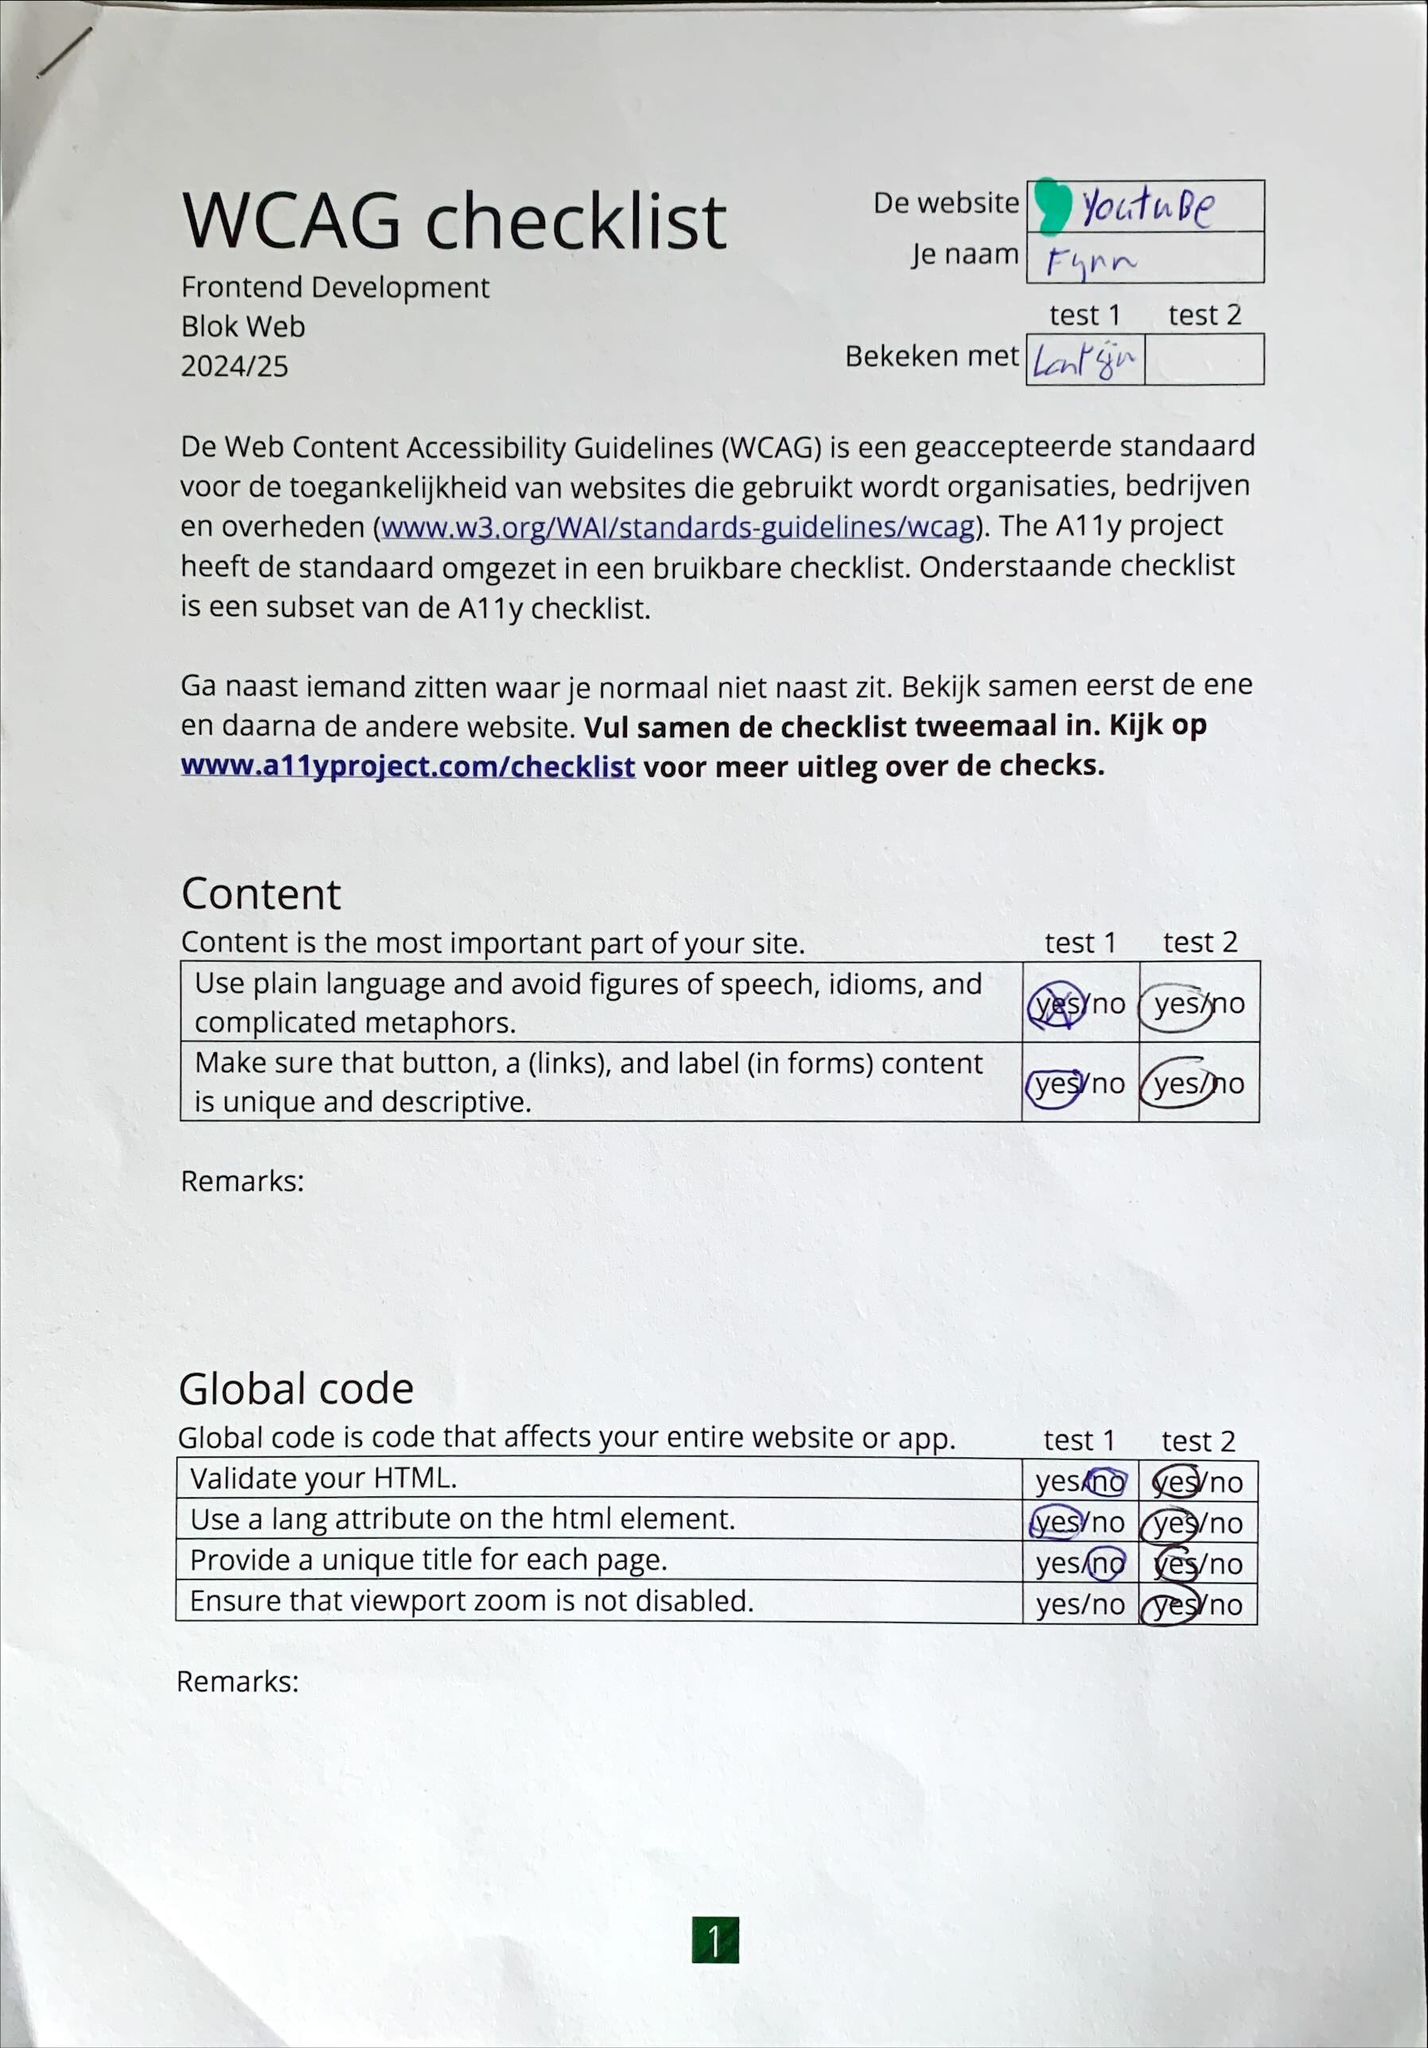 WCAG checklist
Frontend Development
Blok Web
2024/25
De website YoutuBe
Je naam Fynn
test 1 test 2
Bekeken met
De Web Content Accessibility Guidelines (WCAG) is een geaccepteerde standaard
voor de toegankelijkheid van websites die gebruikt wordt organisaties, bedrijven
en overheden (www.w3.org/WAI/standards-guidelines/wcag). The A11y project
heeft de standaard omgezet in een bruikbare checklist. Onderstaande checklist
is een subset van de A11y checklist.
Ga naast iemand zitten waar je normaal niet naast zit. Bekijk samen eerst de ene
en daarna de andere website. Vul samen de checklist tweemaal in. Kijk op
www.a11yproject.com/checklist voor meer uitleg over de checks.
Content
Content is the most important part of your site. test 1 test 2
Use plain language and avoid figures of speech, idioms, and
complicated metaphors. yes/no yes/no
Make sure that button, a (links), and label (in forms) content
is unique and descriptive. yes/no yes/no
Remarks:
Global code
Global code is code that affects your entire website or app. test 1 test 2
Validate your HTML. yes/no yes/no
Use a lang attribute on the html element. yes/no yes/no
Provide a unique title for each page. yes/no yes/no
Ensure that viewport zoom is not disabled. yes/no yes/no
Remarks:
1